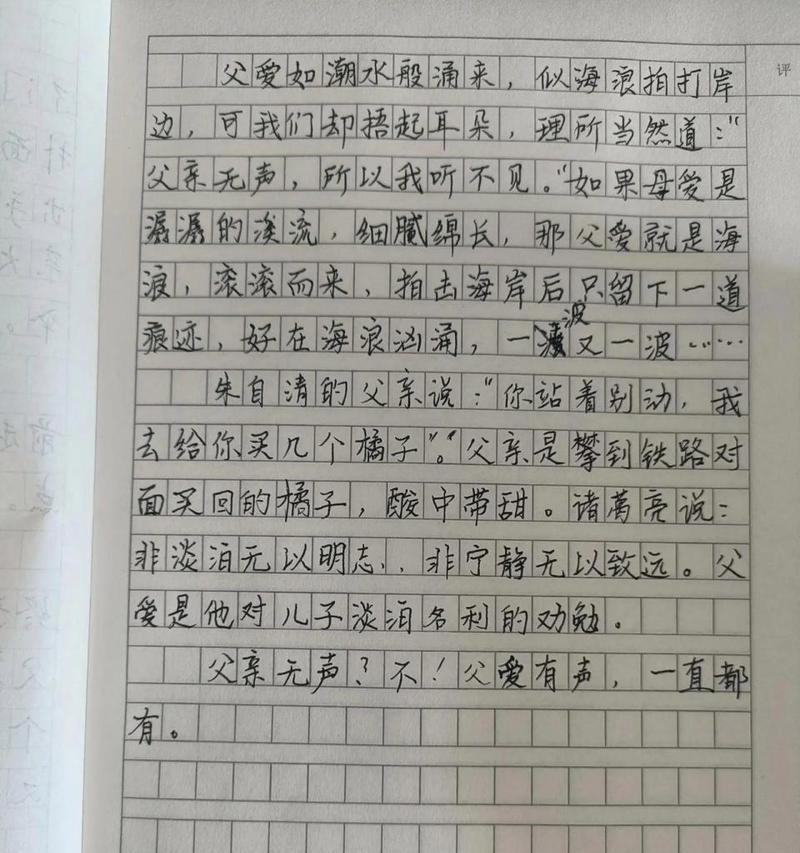 评
父爱如潮水般涌来，似海浪拍打岸
边，可我们却捂起耳朵，理所当然道："
父亲无声，所以我听不见。"如果母爱是
潺潺的溪流，细腻绵长，那父爱就是海
浪，滚滚而来，拍击海岸后只留下一道
痕迹，好在海浪汹涌，一波又一波……
朱自清的父亲说："你站着别动，我
去给你买几个橘子"。父亲是攀到铁路对
面买回的橘子，酸中带甜。诸葛亮说：
非淡泊无以明志，非宁静无以致远。父
爱是他对儿子淡泊名利的劝勉。
父亲无声？不！父爱有声，一直都
有。